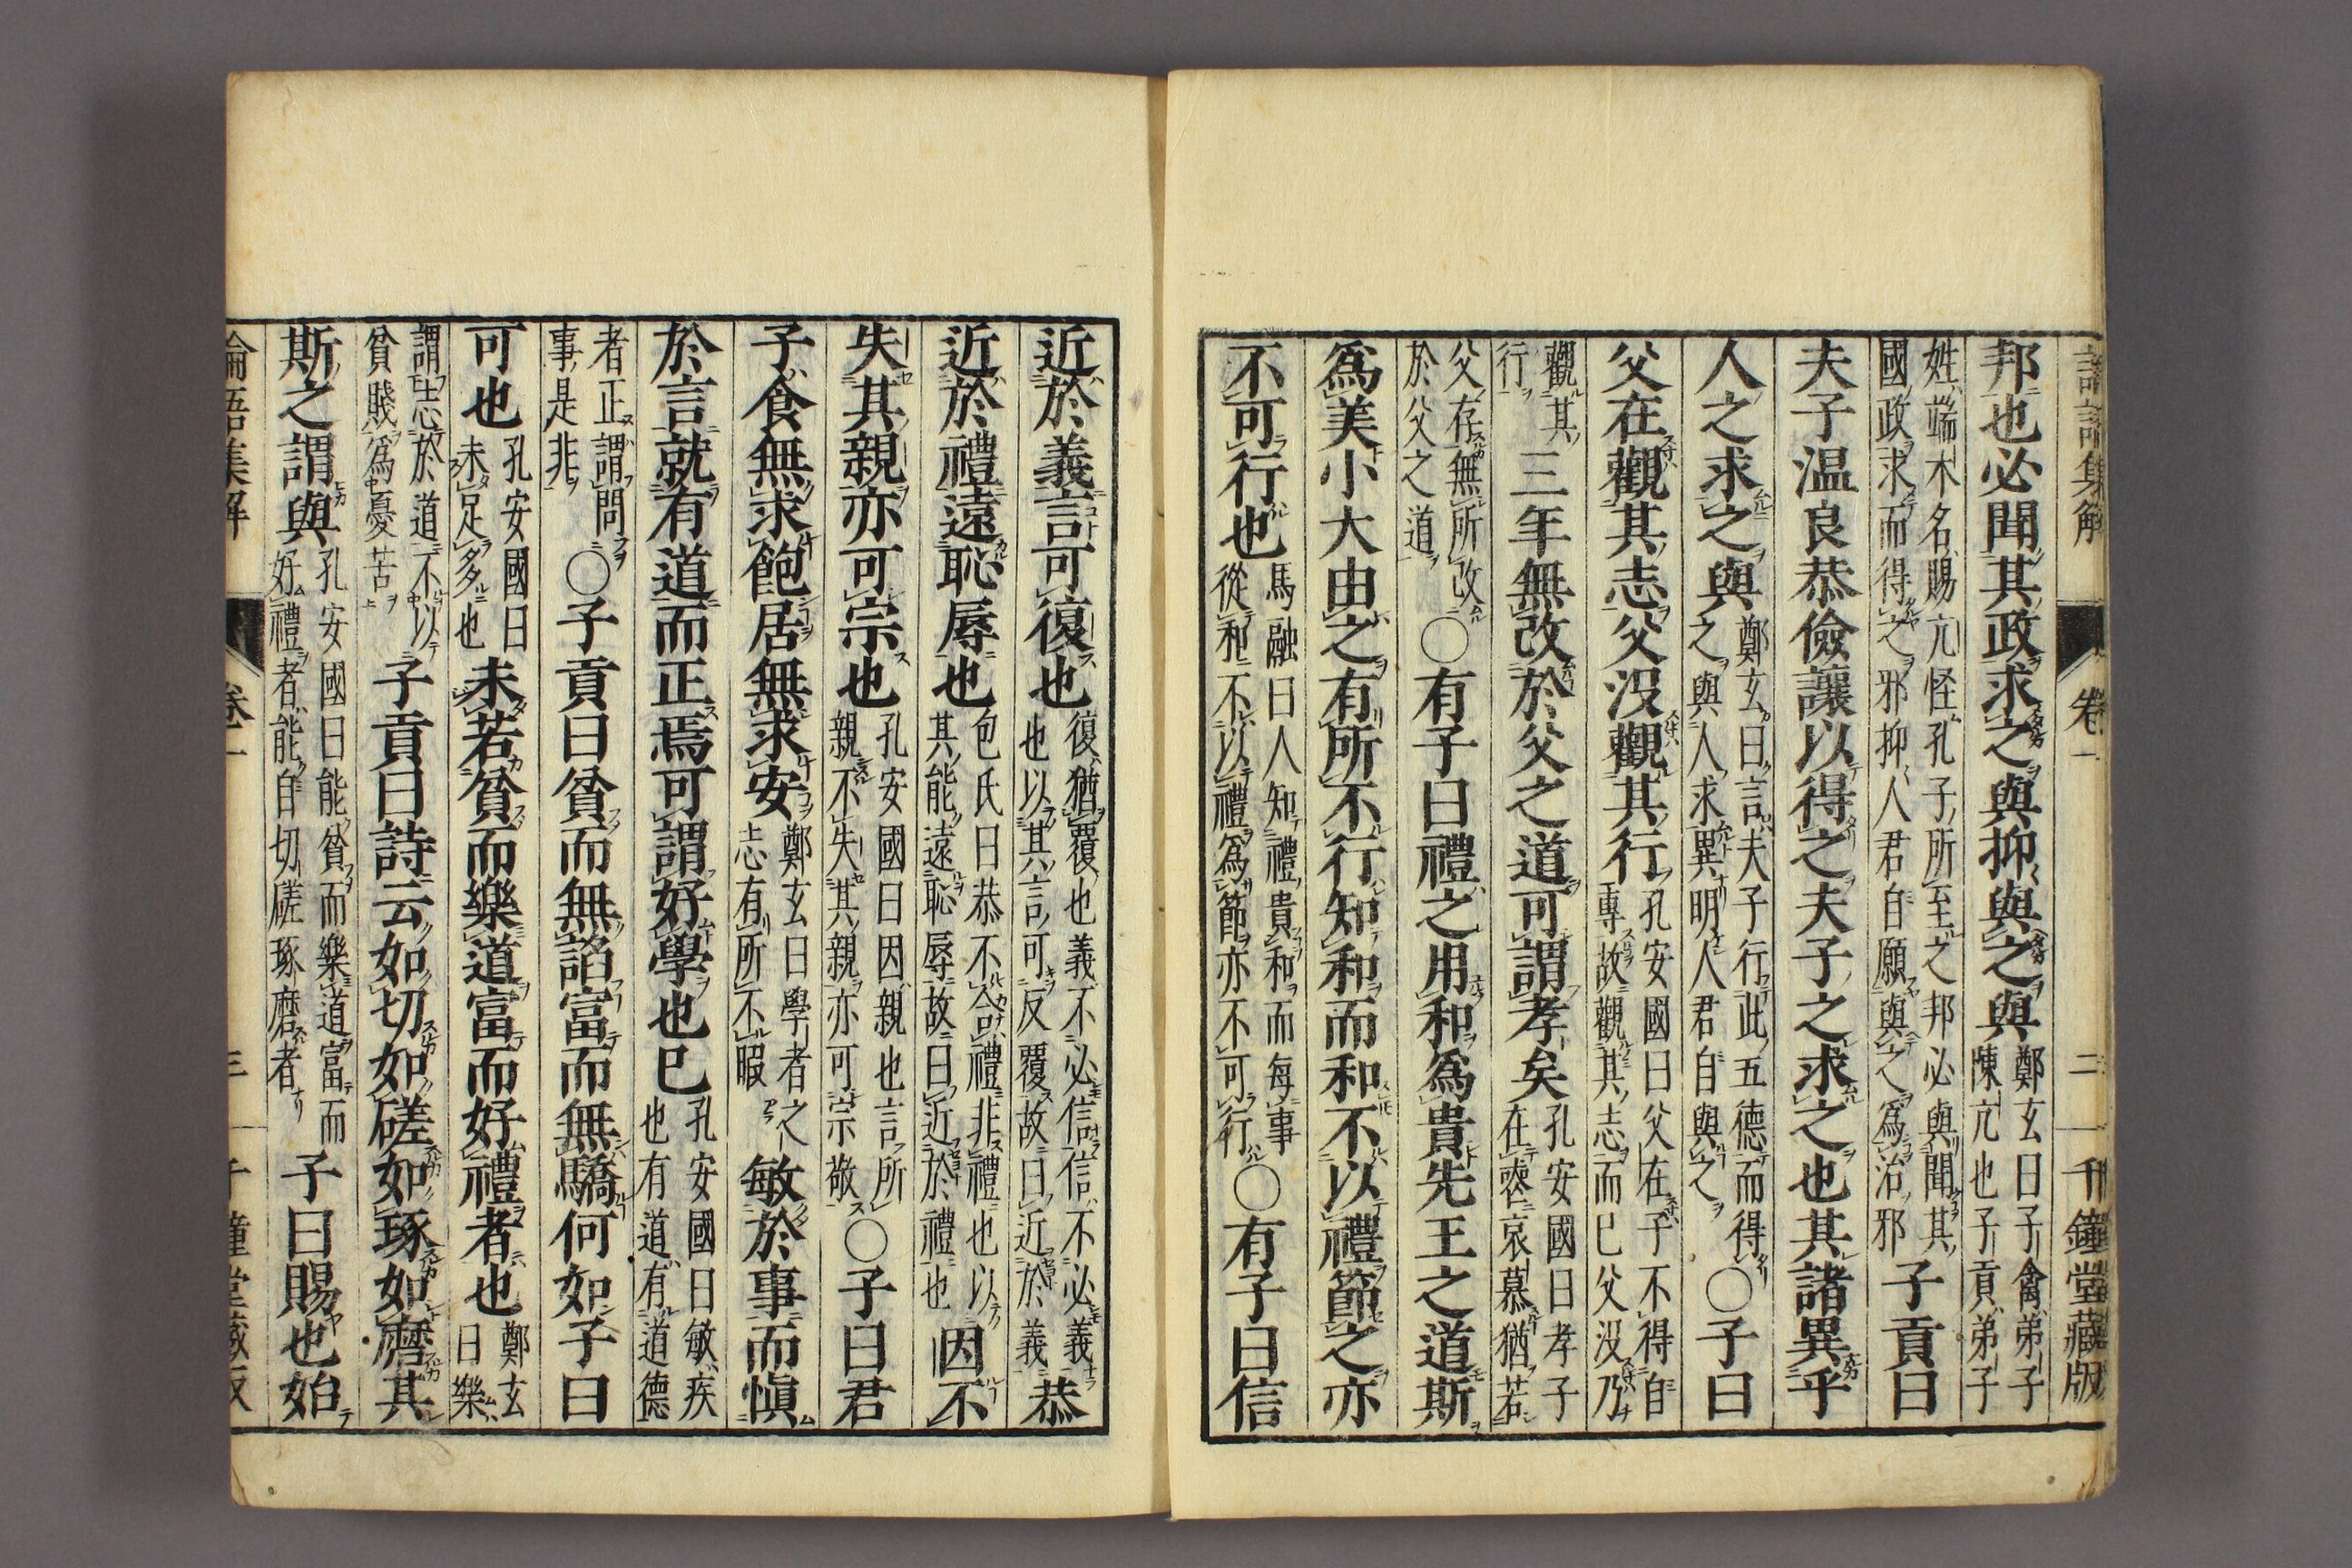 論語集解 卷一 二 千鐘堂藏版
邦也必聞其政求之與抑與之與鄭玄曰子禽弟子陳亢也子貢弟子
姓端木名賜亢怪孔子所至之邦必與聞其國政求而得之邪抑人君自願與之爲治邪子貢曰
夫子温良恭儉讓以得之夫子之求之也其諸異乎
人之求之與鄭玄曰言夫子行此五德而得之與人求異明人君自與之○子曰
父在觀其志父没觀其行孔安國曰父在子不得自專故觀其志而已父没乃
觀其行三年無改於父之道可謂孝矣孔安國曰孝子在喪哀慕猶若
父存無所改於父之道○有子曰禮之用和爲貴先王之道斯
爲美小大由之有所不行知和而和不以禮節之亦
不可行也馬融曰人知禮貴和而每事從和不以禮爲節亦不可行○有子曰信
近於義言可復也復猶覆也義不必信信不必義也以其言可反覆故曰近於義恭
近於禮遠恥辱也包氏曰恭不合禮非禮也以其能遠恥辱故曰近於禮也因不
失其親亦可宗也孔安國曰因親也言所親不失其親亦可宗敬○子曰君
子食無求飽居無求安鄭玄曰學者之志有所不暇敏於事而慎
於言就有道而正焉可謂好學也已孔安國曰敏疾也有道有道德
者正謂問事是非○子貢曰貧而無諂富而無驕何如子曰
可也孔安國曰未足多也未若貧而樂道富而好禮者也鄭玄曰樂
謂志於道不以貧賤爲憂苦子貢曰詩云如切如磋如琢如磨其
斯之謂與孔安國曰能貧而樂道富而好禮者能自切磋琢磨者子曰賜也始
論語集解 卷一 三 千鐘堂藏版